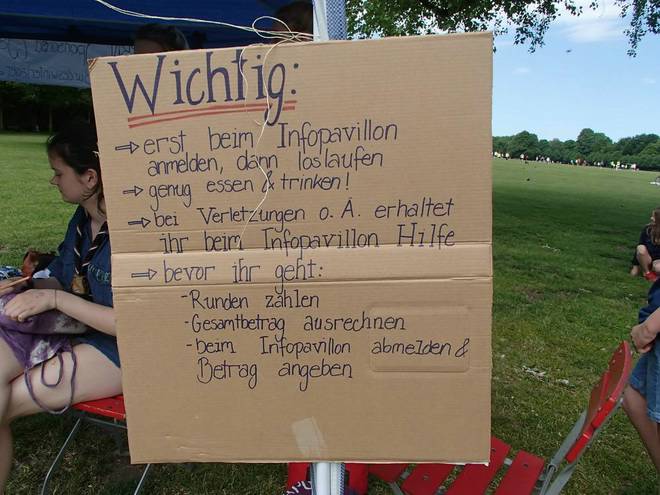 Wichtig:
⇒ erst beim Infopavillon
anmelden, dann loslaufen
⇒ genug essen & trinken!
⇒ bei Verletzungen o. Ä. erhaltet
ihr beim Infopavillon Hilfe
⇒ bevor ihr geht:
- Runden zählen
- Gesamtbetrag ausrechnen
- beim Infopavillon abmelden &
Betrag angeben